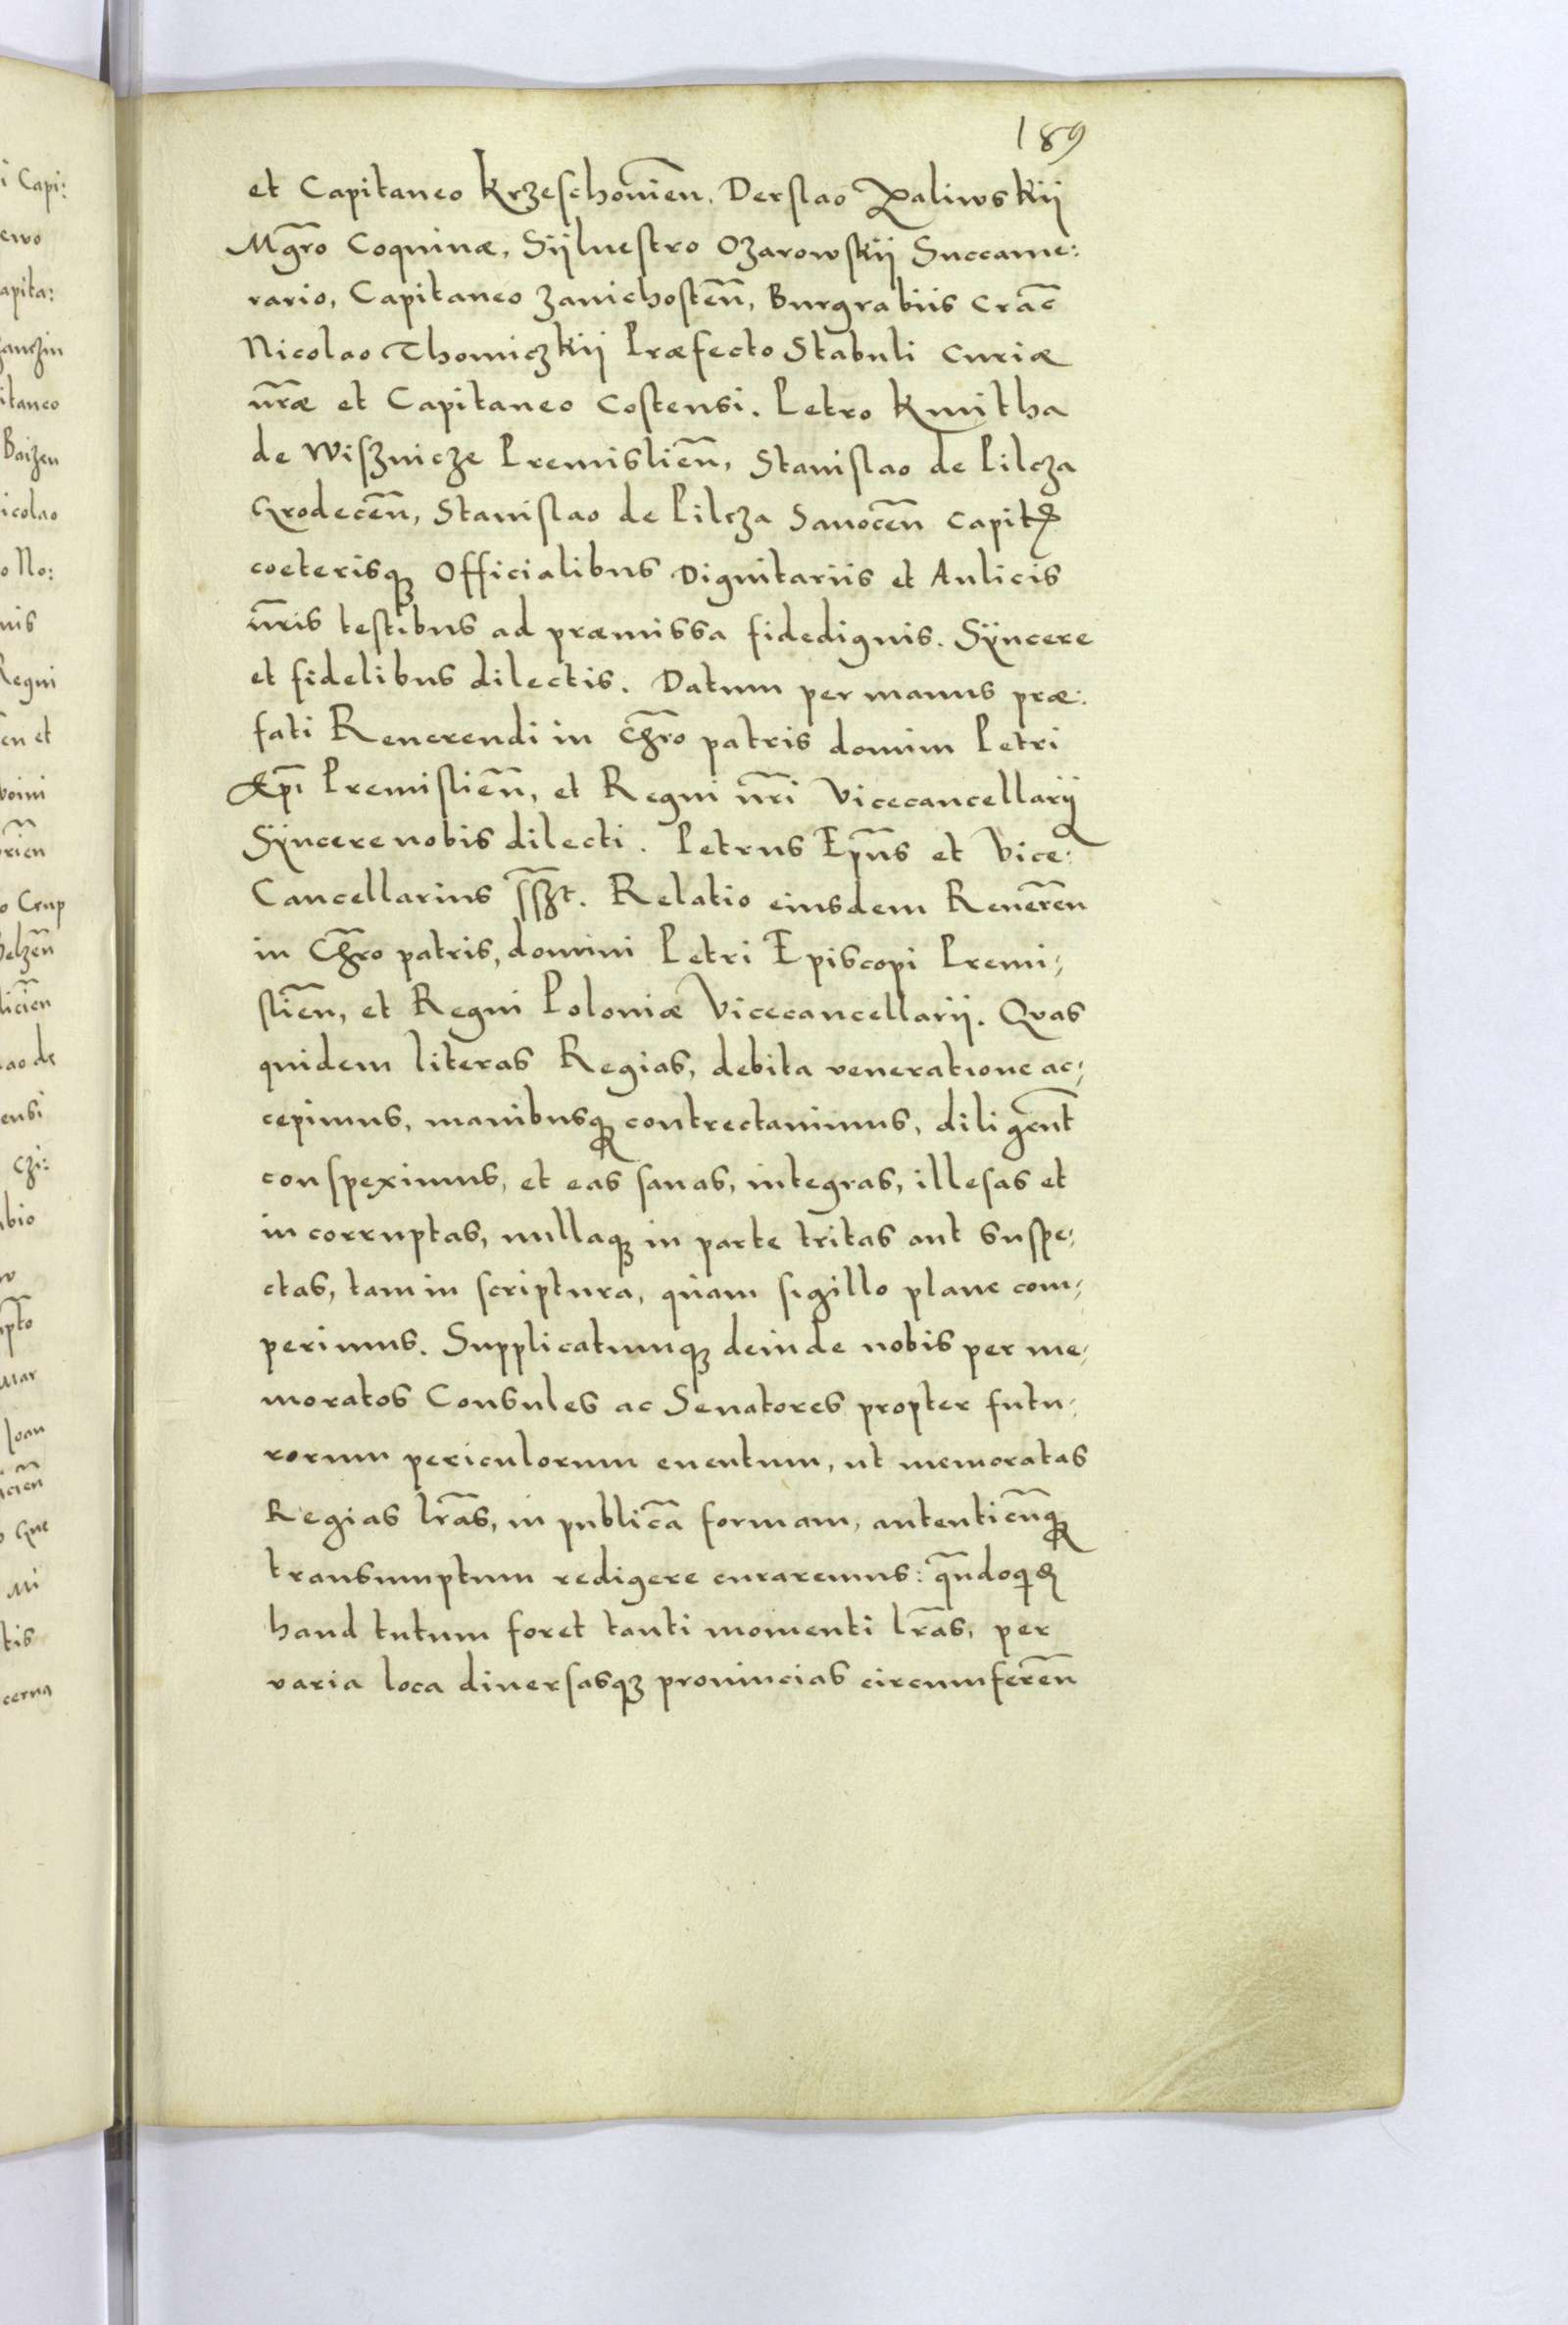 189
et Capitaneo Krzeschouień. Derslao Zaliwskij
Mgr̃o Coquinæ, Sÿluestro Ozarowskij Succame:
rario, Capitaneo Zauichosteñ, Burgrabiis Crac̃
Nicolao Thomiczkij Præfecto Stabuli Curiæ
nr̃æ et Capitaneo Costensi. Petro Kmitha
de Wisznicze Premislieñ, Stanislao de Pilcza
Grodeceñ, Stanislao de Pilcza Sanoceñ Capit
coeterisq; Officialibus Dignitariis et Aulicis
nr̃is testibus ad præmissa fidedignis. Sÿncere
et fidelibus dilectis. Datum per manus præ:
fati Reuerendi in Chr̃o patris domini Petri
Ep̃i Premislieñ, et Regni nr̃i Vicecancellarij
Sÿncere nobis dilecti. Petrus Ep̃us et Vice:
Cancellarius sszt. Relatio eiusdem Reueren̄
in Chr̃o patris, domini Petri Episcopi Premi-
slieñ, et Regni Poloniæ Vicecancellarii. Qvas
quidem literas Regias, debita veneratione ac-
cepimus, manibusq; contrectauimus, diligent̃
conspeximus, et eas sanas, integras, illesas et
incorruptas, nullaq; in parte tritas aut suspe-
ctas, tam in scriptura, quàm sigillo plane com-
perimus. Supplicatumq; deinde nobis per me-
moratos Consules ac Senatores propter futu-
rorum periculorum euentum, ut memoratas
Regias lr̃as, in publicā formam, autenticūq;
transumptum redigere curaremus: quãdoqid
haud tutum foret tanti momenti lr̃as, per
varia loca diuersasq; prouincias circumfereñ
i Capi:
ewo
apita:
itaneo
Baizen
icolao
o No:
nis
Regni
en et
ao de
ensi
czi:
bio
Mar
Joan
Mi
tis